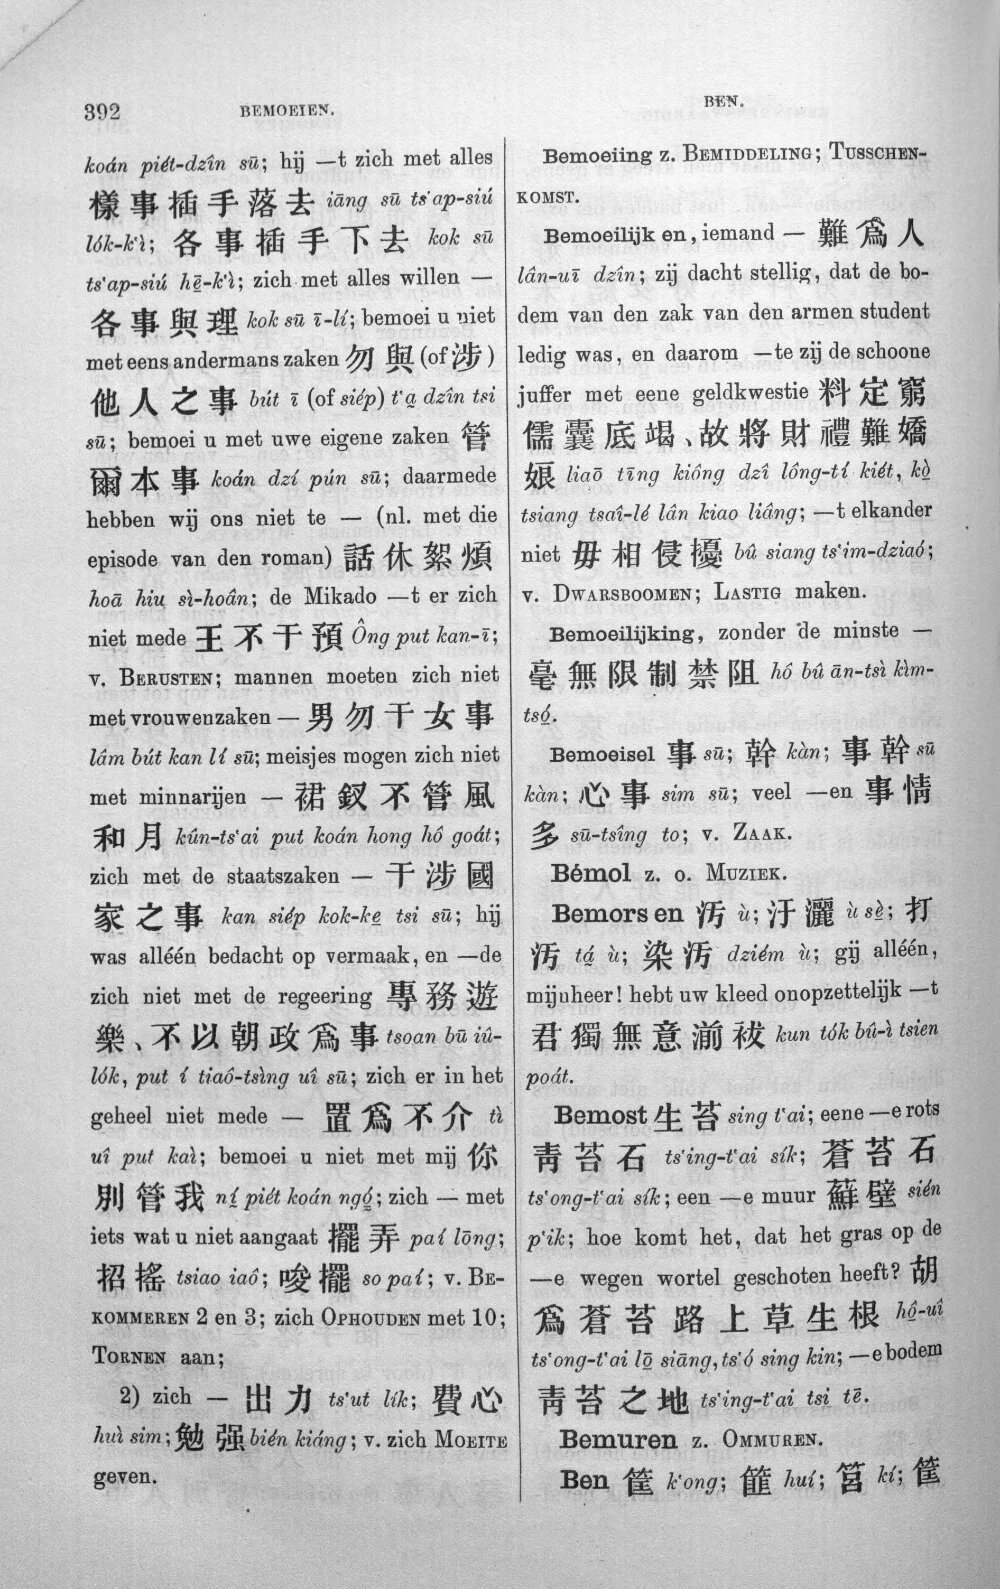 392
BEMOEIEN.
BEN.
koán piét-dzîn sū; hij —t zich met alles
樣事插手落去 iāng sū ts‘ap-siú
lók-k‘ì; 各事插手下去 kok sū
ts‘ap-siú hē̤-k‘ì; zich met alles willen —
各事與理 kok sū ī-lí; bemoei u niet
met eens andermans zaken 勿與 (of 涉)
他人之事 bút ī (of siép) t‘a̤ dzîn tsi
sū; bemoei u met uwe eigene zaken 管
爾本事 koán dzí pún sū; daarmede
hebben wij ons niet te — (nl. met die
episode van den roman) 話休絮煩
hoā hiu sì-hoân; de Mikado —t er zich
niet mede 王不干預 Ông put kan-ī;
v. BERUSTEN; mannen moeten zich niet
met vrouwenzaken — 男勿干女事
lâm bút kan lí sū; meisjes mogen zich niet
met minnarijen — 裙釵不管風
和月 kûn-ts‘ai put koán hong hô goát;
zich met de staatszaken — 干涉國
家之事 kan siép kok-ke̤ tsi sū; hij
was alléén bedacht op vermaak, en —de
zich niet met de regeering 專務遊
樂、不以朝政爲事 tsoan bū iû-
lók, put í tiaô-tsìng uî sū; zich er in het
geheel niet mede — 置爲不介 tì
uî put kaì; bemoei u niet met mij 你
別管我 ní̤ piét koán ngó̤; zich — met
iets wat u niet aangaat 擺弄 paí lōng;
招搖 tsiao iaô; 唆擺 so paí; v. BE-
KOMMEREN 2 en 3; zich OPHOUDEN met 10;
TORNEN aan;
2) zich — 出力 ts‘ut lík; 費心
huì sim; 勉强 bién kiáng; v. zich MOEITE
geven.
Bemoeiing z. BEMIDDELING; TUSSCHEN-
KOMST.
Bemoeilijken, iemand — 難爲人
lân-uī dzîn; zij dacht stellig, dat de bo-
dem van den zak van den armen student
ledig was, en daarom —te zij de schoone
juffer met eene geldkwestie 料定窮
儒囊底竭、故將財禮難嬌
娘 liaō tīng kiông dzî lông-tí kiét, kò̤
tsiang tsaî-lé lân kiao liâng; —t elkander
niet 毋相侵擾 bû siang ts‘im-dziaó;
v. DWARSBOOMEN; LASTIG maken.
Bemoeilijking, zonder de minste —
毫無限制禁阻 hô bû ān-tsì kìm-
tsó̤.
Bemoeisel 事 sū; 幹 kàn; 事幹 sū
kàn; 心事 sim sū; veel —en 事情
多 sū-tsîng to; v. ZAAK.
Bémol z. o. MUZIEK.
Bemorsen 汚 ù; 汙灑 ù sè̤; 打
汚 tá̤ ù; 染汚 dziém ù; gij alléén,
mijnheer! hebt uw kleed onopzettelijk —t
君獨無意湔袚 kun tók bû-ì tsien
poát.
Bemost 生苔 sing t‘ai; eene —e rots
靑苔石 ts‘ing-t‘ai sík; 蒼苔石
ts‘ong-t‘ai sík; een —e muur 蘚壁 sién
p‘ik; hoe komt het, dat het gras op de
—e wegen wortel geschoten heeft? 胡
爲蒼苔路上草生根 hô̤-uî
ts‘ong-t‘ai lō̤ siāng, ts‘ó sing kin; —e bodem
靑苔之地 ts‘ing-t‘ai tsi tē.
Bemuren z. OMMUREN.
Ben 筐 k‘ong; 篚 huí; 筥 kí; 筐